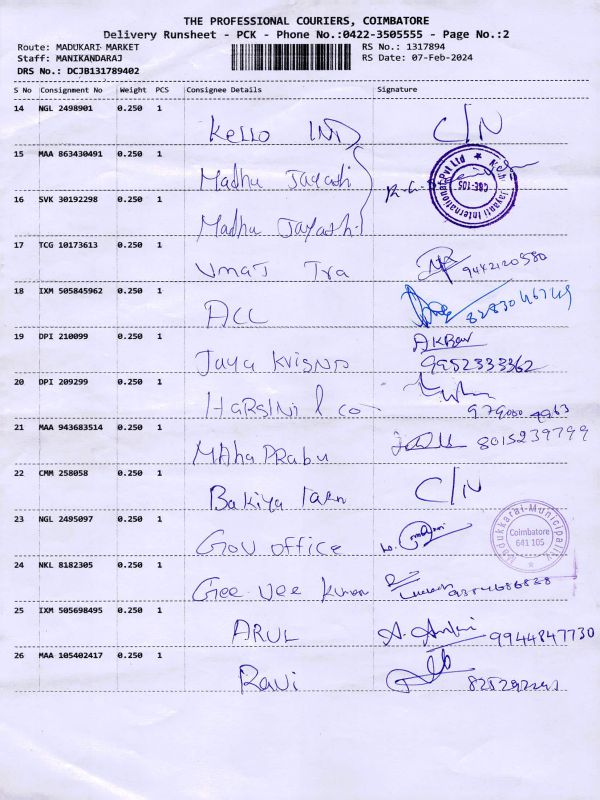 THE PROFESSIONAL COURIERS, COIMBATORE
Delivery Runsheet - PCK - Phone No.:0422-3505555 - Page No.:2
Route: MADUKARI-MARKET RS No.: 1317894
Staff: MANIKANDARAJ RS Date: 07-Feb-2024
DRS No.: DCJB131789402
S No Consignment No Weight PCS Consignee Details Signature
14 NGL 2498901 0.250 1 Kello IND C/N
15 MAA 863430491 0.250 1 Madhu Jayadi
Jayanti International Pvt Ltd CBE-105
16 SVK 30192298 0.250 1 Madhu Jayashi
17 TCG 10173613 0.250 1 Umaj Tra 9442120580
18 IXM 505845962 0.250 1 ACC
19 DPI 210099 0.250 1 Jaya Krisna AKBar 9952333362
20 DPI 209299 0.250 1 HARSINI & co
21 MAA 943683514 0.250 1 MAha PRabu 8015239799
22 CMM 258058 0.250 1 Bakiya C/N
23 NGL 2495097 0.250 1 Gov office
Madukkarai-Municipality Coimbatore 641 105
24 NKL 8182305 0.250 1 Gee Vee
25 IXM 505698495 0.250 1 ARUL 9944847730
26 MAA 105402417 0.250 1 Ravi